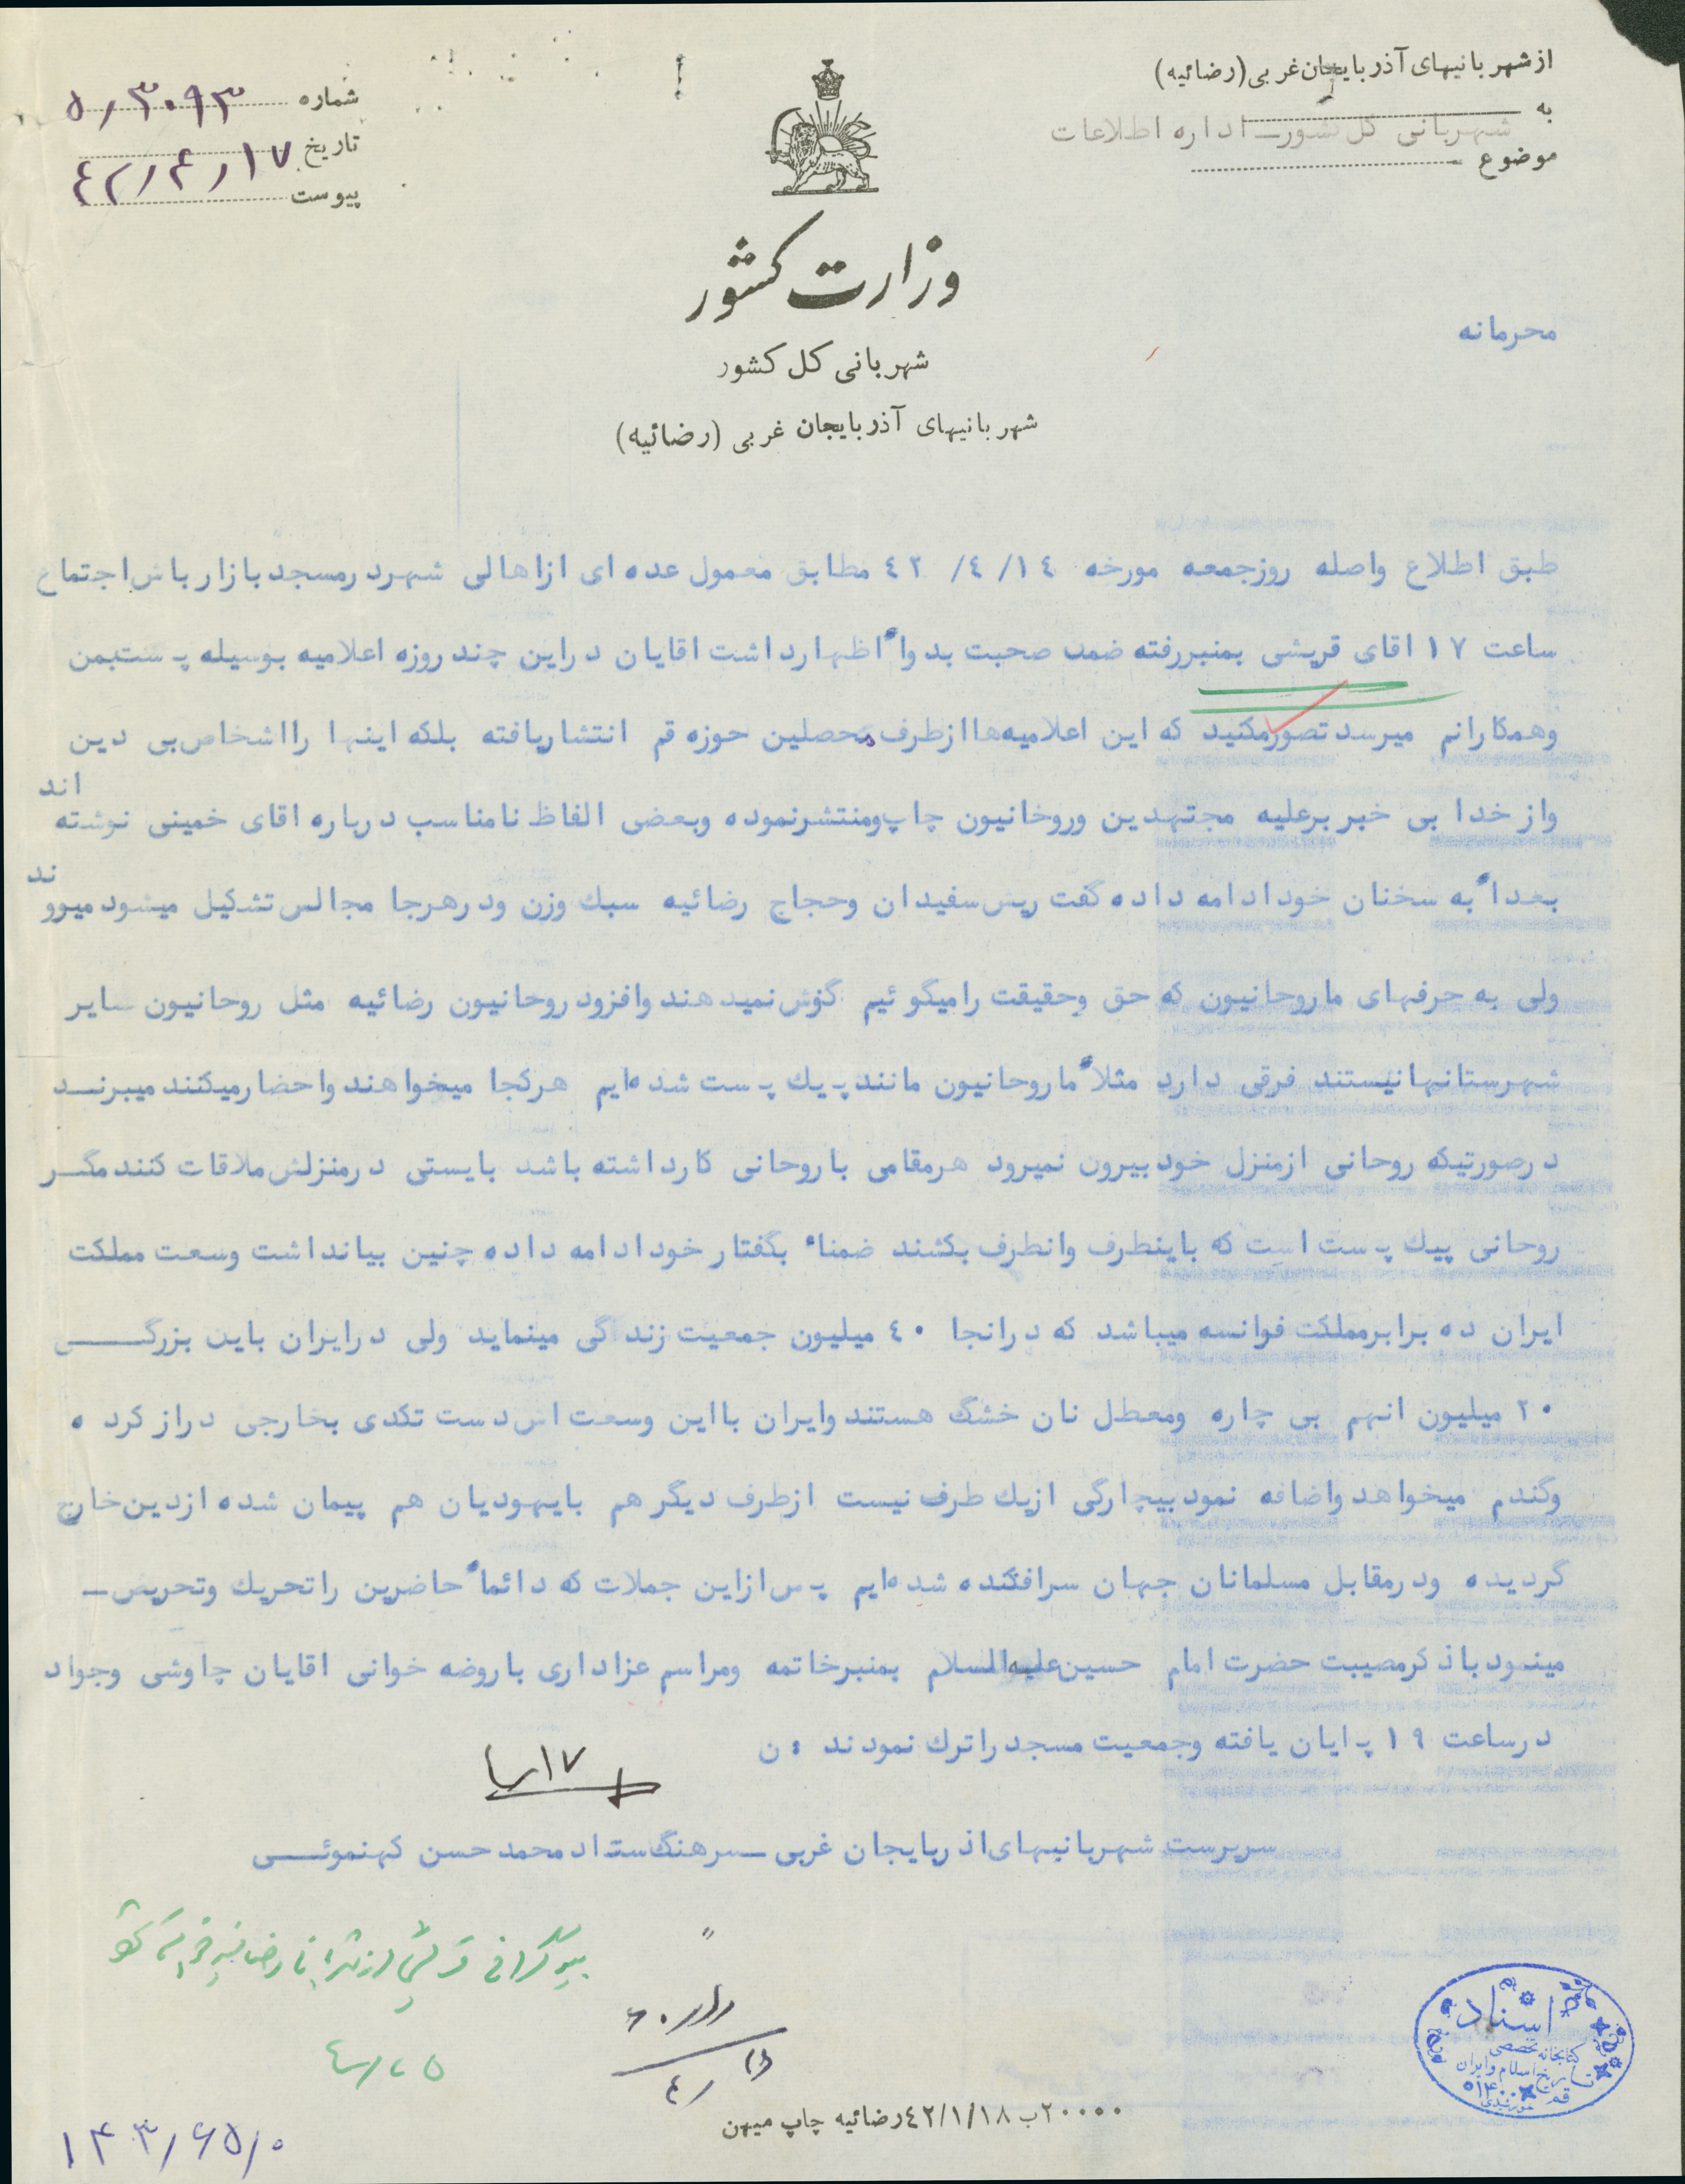 از شهربانیهای آذربایجان غربی (رضائیه)
به شهربانی کل کشور ـ اداره اطلاعات
موضوع
شماره ۵/۳۰۹۳
تاریخ ۴۲/۴/۱۷
پیوست
وزارت کشور
شهربانی کل کشور
شهربانیهای آذربایجان غربی (رضائیه)
محرمانه
طبق اطلاع واصله روزجمعه مورخه ٤٢/٤/١٤ مطابق معمول عده ای ازاهالی شهردرمسجدبازارباش اجتماع
ساعت ١٧ اقای قریشی بمنبررفته ضمن صحبت بدواً اظهارداشت اقایان دراین چندروزه اعلامیه بوسیله پستبمن
وهمکارانم میرسدتصورمکنید که این اعلامیه‌هاازطرف محصلین حوزه قم انتشاریافته بلکه اینها رااشخاص‌بی دین
وازخدا بی خبر برعلیه مجتهدین وروحانیون چاپ‌ومنتشرنموده وبعضی الفاظ نامناسب درباره اقای خمینی نوشته اند
بعداً به سخنان خودادامه داده گفت ریش‌سفیدان وحجاج رضائیه سبك وزن ودرهرجا مجالس تشکیل میشودمیروند
ولی به حرفهای ماروحانیون که حق وحقیقت رامیگوئیم گوش نمیدهندوافزودروحانیون رضائیه مثل روحانیون سایر
شهرستانهانیستند فرقی دارد مثلاً ماروحانیون مانندپیك پست شده‌ایم هرکجا میخواهندواحضارمیکنندمیبرنـد
درصورتیکه روحانی ازمنزل خودبیرون نمیرود هرمقامی باروحانی کارداشته باشد بایستی درمنزلش ملاقات کنندمگـر
روحانی پیك پست است که باینطرف وانطرف بکشند ضمناً بگفتارخودادامه داده چنین بیانداشت وسعت مملکت
ایران ده برابرمملکت فرانسه میباشد که درانجا ٤٠ میلیون جمعیت زندگی مینماید ولی درایران باین بزرگــی
٢٠ میلیون انهم بی چاره ومعطل نان خشگ هستندوایران بااین وسعت اش دست تکدی بخارجی درازکرده
وگندم میخواهدواضافه نمودبیچارگی ازیك طرف نیست ازطرف دیگرهم بایهودیان هم پیمان شده ازدین‌خارج
گردیده ودرمقابل مسلمانان جهان سرافکنده شده‌ایم پس ازاین جملات که دائماً حاضرین راتحریك وتحریص ـ
مینمودباذکرمصیبت حضرت امام حسین‌علیه‌السلام بمنبرخاتمه ومراسم عزاداری باروضه خوانی اقایان چاوشی وجواد
درساعت ١٩ پایان یافته وجمعیت مسجدراترك نمودند ن
سرپرست شهربانیهای‌اذربایجان غربی ـ سرهنگ‌ستادمحمدحسن کهنموئـی
بیوگرافی قریشی از
٤/٢٥
۱۴۳/۶۵/۰
اسناد
کتابخانه تخصصی
تاریخ اسلام و ایران
قم
۲۰۰۰۰ب ۴۲/۱/۱۸ رضائیه چاپ میهن